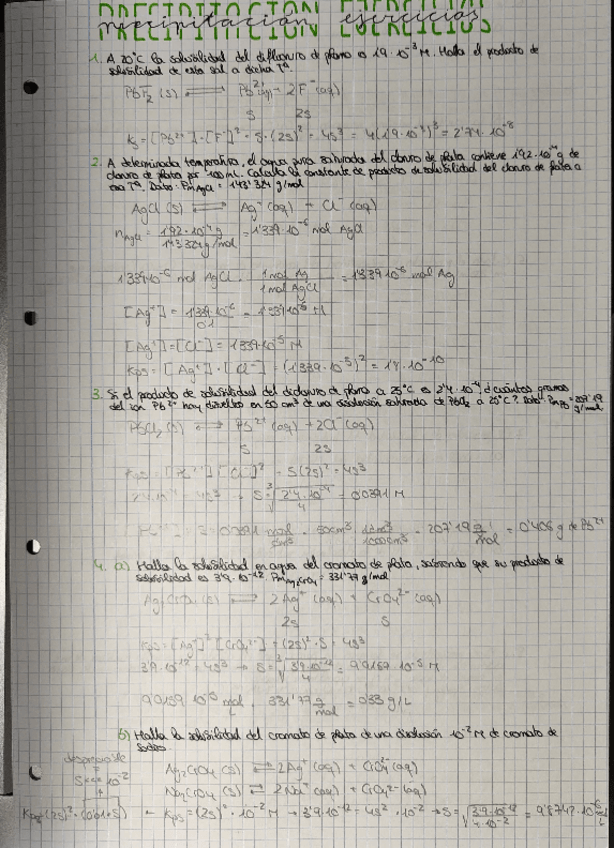 PRECIPITACION EJERCICIOS
precipitación ejercicios
1. A 20°C la solubilidad del difluoruro de plomo es 1'9·10⁻³ M. Halla el producto de
solubilidad de esta sal a dicha Tª.
PbF₂ (s) ⇌ Pb²⁺(aq) + 2F⁻ (aq)
s 2s
Ks = [Pb²⁺]·[F⁻]² = s·(2s)² = 4s³ = 4(1'9·10⁻³)³ = 2'74·10⁻⁸
2. A determinada temperatura, el agua pura saturada del cloruro de plata contiene 1'92·10⁻⁴ g de
cloruro de plata por 100 mL. Calcula la constante de producto de solubilidad del cloruro de plata a
esa Tª. Dato: Pm AgCl = 143'324 g/mol
AgCl (s) ⇌ Ag⁺ (aq) + Cl⁻ (aq)
n AgCl = 1'92·10⁻⁴ g / 143'324 g/mol = 1'339·10⁻⁶ mol AgCl
1'339·10⁻⁶ mol AgCl · 1 mol Ag / 1 mol AgCl = 1'339·10⁻⁶ mol Ag
[Ag⁺] = 1'339·10⁻⁶ / 0'1 = M
[Ag⁺] = [Cl⁻] = 1'339·10⁻⁵ M
Kps = [Ag⁺]·[Cl⁻] = (1'339·10⁻⁵)² = 1'8·10⁻¹⁰
3. Si el producto de solubilidad del dicloruro de plomo a 25°C es 2'4·10⁻⁴, ¿cuántos gramos
del ion Pb²⁺ hay disueltos en 50 cm³ de una disolución saturada de PbCl₂ a 25°C? Dato: Pm Pb = 207'19 g/mol
PbCl₂ (s) ⇌ Pb²⁺ (aq) + 2Cl⁻ (aq)
s 2s
Kps = [Pb²⁺]·[Cl⁻]² = s(2s)² = 4s³
2'4·10⁻⁴ = 4s³ → s = ³√(2'4·10⁻⁴ / 4) = 0'0391 M
[Pb²⁺] = s = 0'0391 mol/dm³ · 50cm³ · 1dm³/1000cm³ · 207'19 g/mol = 0'406 g de Pb²⁺
4. a) Halla la solubilidad en agua del cromato de plata, sabiendo que su producto de
solubilidad es 3'9·10⁻¹². Pm Ag₂CrO₄ = 331'77 g/mol
Ag₂CrO₄ (s) ⇌ 2Ag⁺ (aq) + CrO₄²⁻ (aq)
2s s
Kps = [Ag⁺]²[CrO₄²⁻] = (2s)²·s = 4s³
3'9·10⁻¹² = 4s³ → s = ³√(3'9·10⁻¹² / 4) = 9'9159·10⁻⁵ M
9'9159·10⁻⁵ mol/L · 331'77 g/mol = 0'033 g/L
b) Halla la solubilidad del cromato de plata de una disolución 10⁻² M de cromato de
sodio.
Ag₂CrO₄ (s) ⇌ 2Ag⁺ (aq) + CrO₄²⁻ (aq)
despreciable
s <<< 10⁻²
Na₂CrO₄ (s) ⇌ 2Na⁺ (aq) + CrO₄²⁻ (aq)
Kps = (2s)²·(0'01+s) ← Kps = (2s)²·10⁻² M → 3'9·10⁻¹² = 4s²·10⁻² → s = √(3'9·10⁻¹² / 4·10⁻²) = 9'8742·10⁻⁶ mol/L